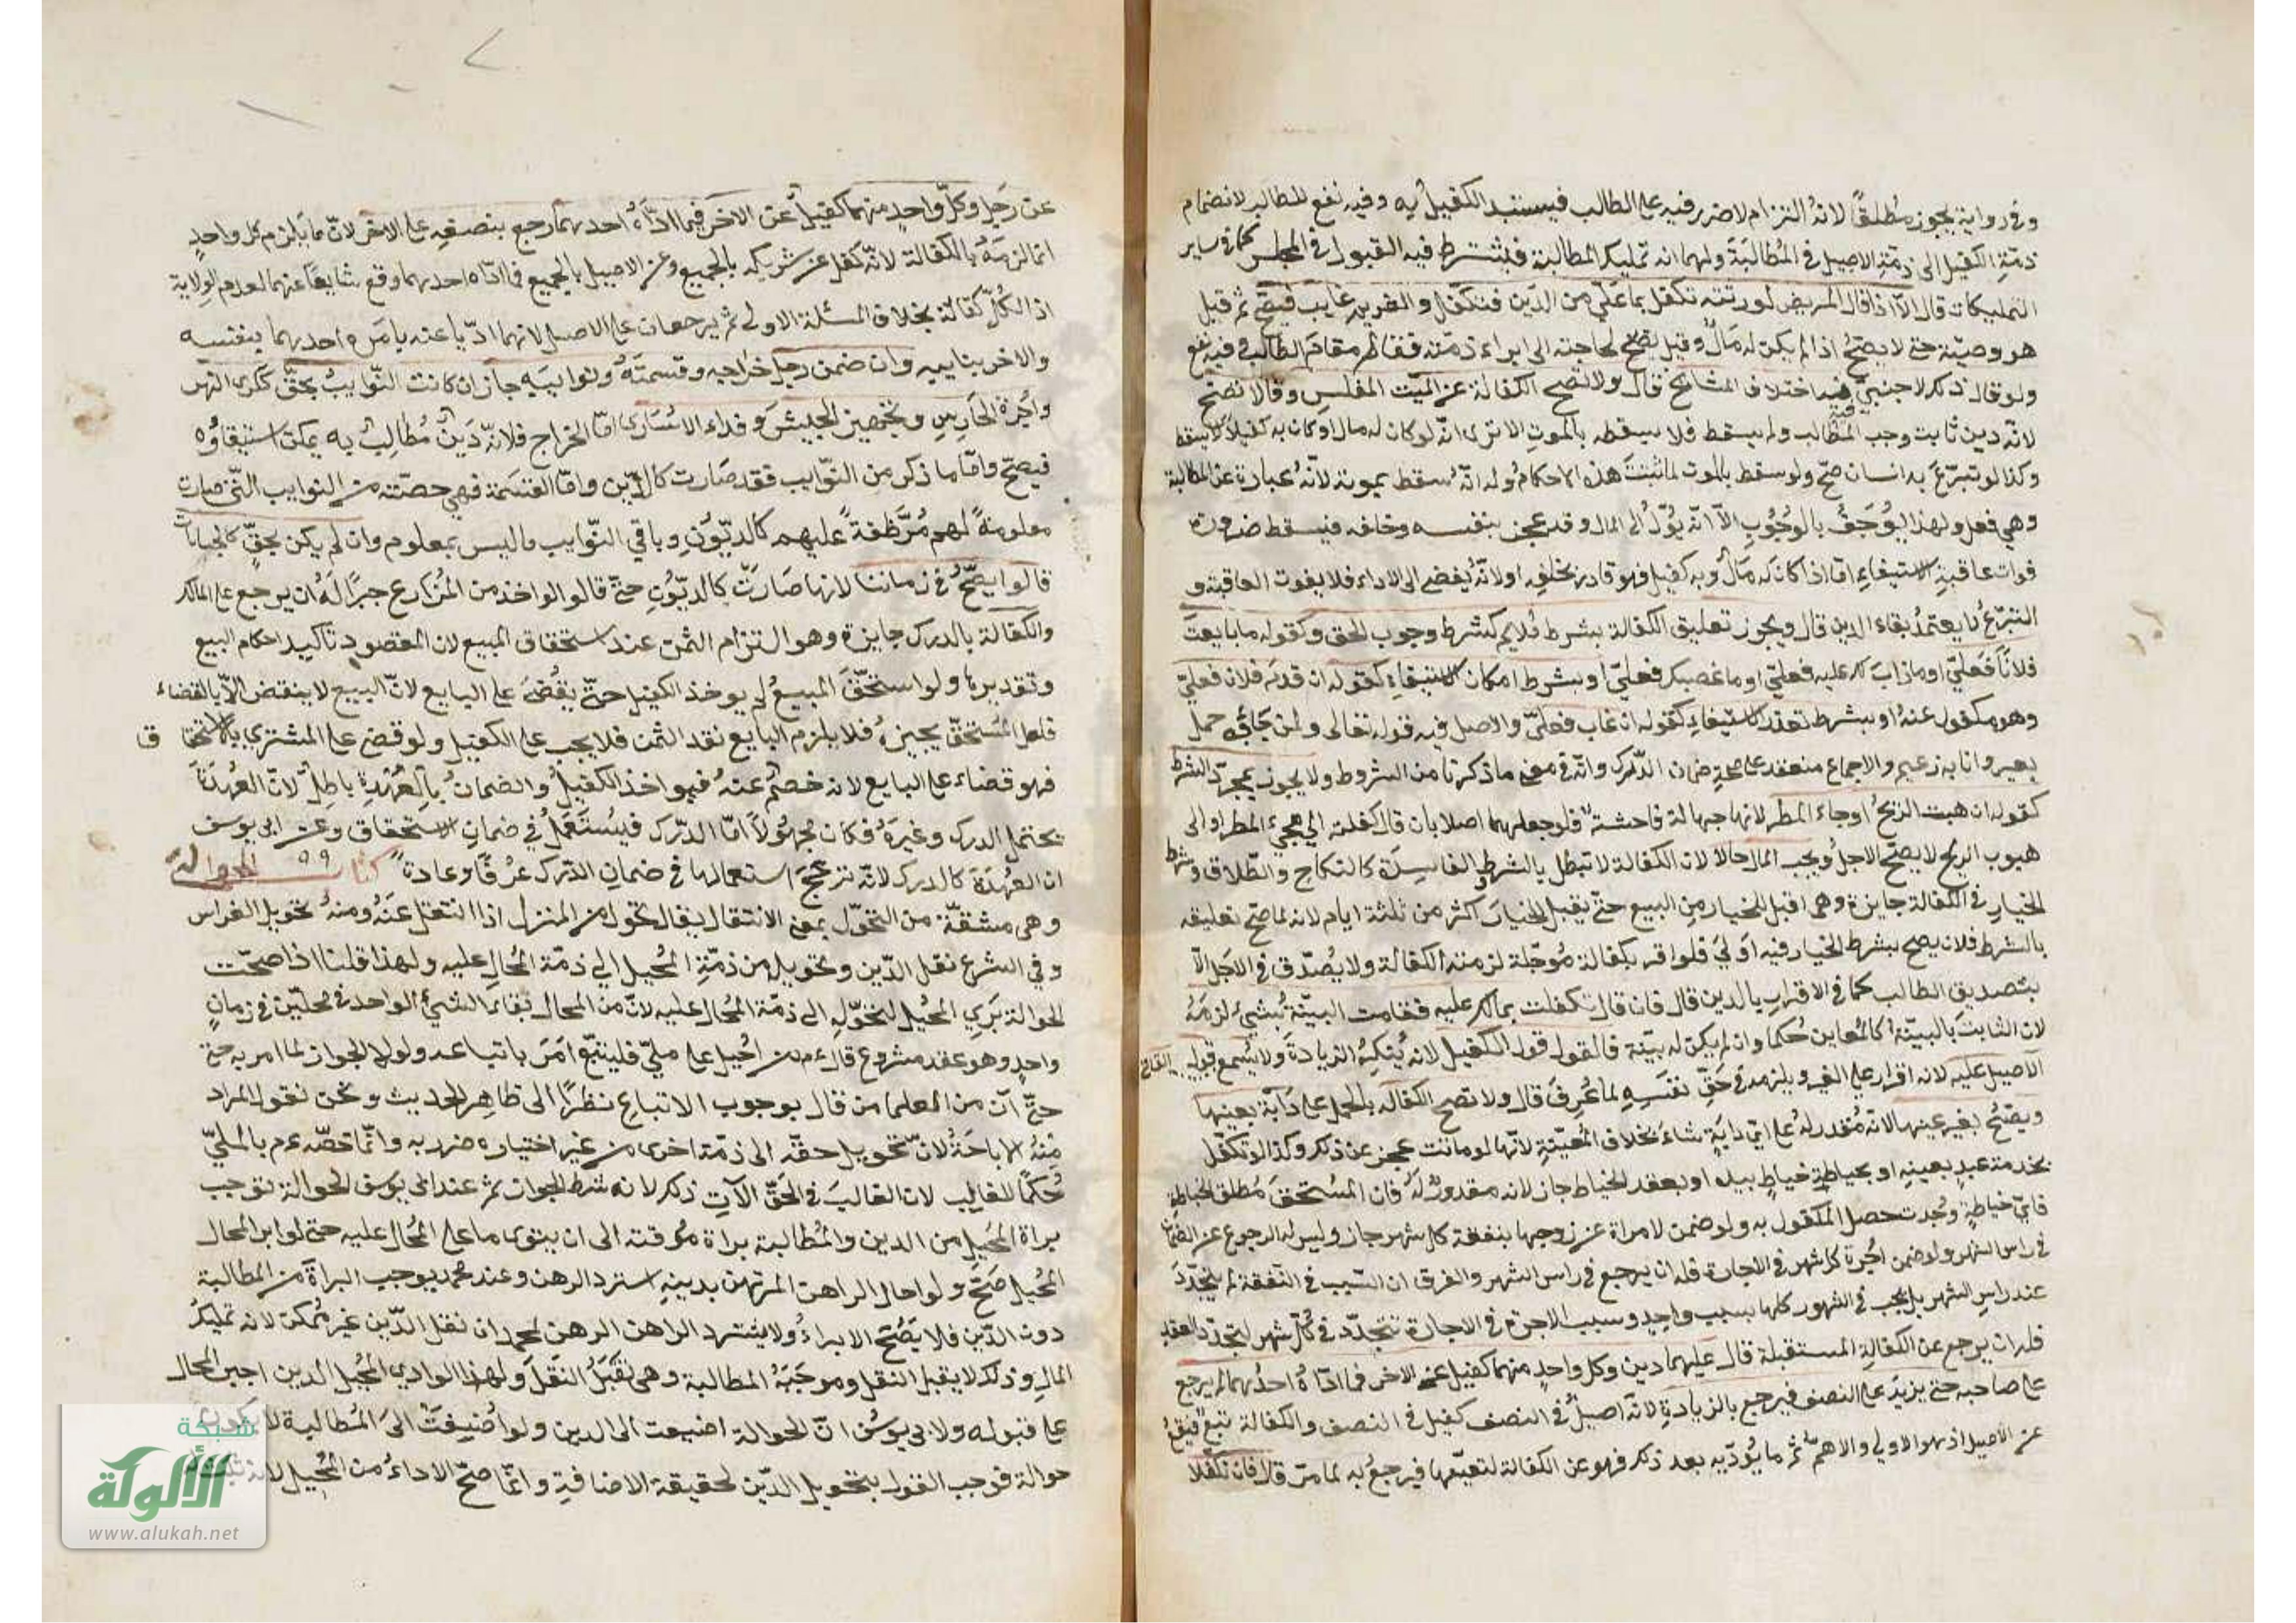 وفي رواية يجوز مطلقاً لانه التزام لا ضرر فيه على الطالب فيستبد الكفيل به وفيه نفع للطالب لانضمام
ذمة الكفيل الى ذمة الاصيل في المطالبة ولهما انه تمليك المطالبة فيشترط فيه القبول في المجلس كما في ساير
التمليكات قال الا اذا قال المريض لورثته تكفل بما علي من الدين فتكفل والغريم غايب فيصح ثم قيل
هو وصية حتى لا يصح اذا لم يكن له مال وقيل تصح لحاجته الى ابراء ذمته فقام مقام الطالب وفيه نفع
ولو قال ذلك لاجنبي فيه اختلاف المشايخ قال ولا تصح الكفالة عن الميت المفلس وقالا تصح
لانه دين ثابت وجب للطالب ولم يسقط فلا يسقط بالموت الا ترى انه لو كان له مال او كان به كفيلا لا يسقط
وكذا لو تبرع به انسان صح ولو سقط بالموت لما ثبتت هذه الاحكام وله انه سقط بموته لانه عبارة عن المطالبة
وهي فعل ولهذا يوصف بالوجوب الا انه يؤل الى المال وقد عجز بنفسه وخلفه فيسقط ضرورة
فوات عاقبة الاستيفاء اما اذا كان له مال وبه كفيل فهو قادر بخلفه او لانه يفضي الى الاداء فلا يفوت العاقبة و
التبرع لا يعتمد بقاء الدين قال ويجوز تعليق الكفالة بشرط ملايم كشرط وجوب الحق وكقوله ما بايعت
فلاناً فعلي او ما ذاب لك عليه فعلي او ما غصبك فعلي او بشرط امكان الاستيفاء كقوله ان قدم فلان فعلي
وهو مكفول عنه او بشرط تعذر الاستيفاء كقوله ان غاب فعلي والاصل فيه قوله تعالى ولمن جاء به حمل
بعير وانا به زعيم والاجماع منعقد على صحة ضمان الدرك وانه في معنى ما ذكرنا من الشروط ولا يجوز بمجرد الشرط
كقوله ان هبت الريح او جاء المطر لانها جهالة فاحشة فلو جعلهما اجلا بان قال كفلته الى مجيء المطر او الى
هبوب الريح لا يصح الاجل ويجب المال حالا لان الكفالة لا تبطل بالشروط الفاسدة كالنكاح والطلاق وشرط
الخيار في الكفالة جايزة وهي اقبل للخيار من البيع حتى يقبل الخيار اكثر من ثلثة ايام لانه لما صح تعليقه
بالشرط فلان يصح بشرط الخيار فيه اولى فلو اقر بكفالة مؤجلة لزمته الكفالة ولا يصدق في الاجل الا
بتصديق الطالب كما في الاقرار بالدين قال فان قال تكفلت بما لك عليه فقامت البينة بشيء لزمه
لان الثابت بالبينة كالمعاين حكما وان لم يكن له بينة فالقول قول الكفيل لانه ينكر الزيادة ولا يسمع قول
الاصيل عليه لانه اقرار على الغير ويلزمه في حق نفسه لما عرف قال ولا تصح الكفالة بالحمل على دابة بعينها
ويصح بغير عينها لانه مقدور له على اي دابة شاء بخلاف المعينة لانها لو ماتت عجز عن ذلك وكذا لو تكفل
بخدمة عبد بعينه او بخياطة خياط بيده او بعقد الخياط جاز لانه مقدور له فان المستحق مطلق الخياطة
فاي خياطة وجدت حصل المكفول به ولو ضمن لامراة عن زوجها بنفقة كل شهر جاز وليس له الرجوع عن الضمان
في راس الشهر ولو ضمن اجرة كل شهر في الاجارة فله ان يرجع في راس الشهر والفرق ان السبب في النفقة لم يتجدد
عند راس الشهر بل يجب في الشهور كلها بسبب واحد وسبب الاجرة في الاجارة تتجدد في كل شهر لتجدد العقد
فله ان يرجع عن الكفالة المستقبلة قال عليهما دين وكل واحد منهما كفيل عن الاخر فما اداه احدهما لم يرجع
على صاحبه حتى يزيد على النصف فيرجع بالزيادة لانه اصيل في النصف كفيل في النصف والكفالة تبع فيقع
عن الاصيل اذ هو الاولى والاهم ثم ما يؤديه بعد ذلك فهو عن الكفالة لتعينها فيرجع به لما مر قال فان تكفلا
عن رجل وكل واحد منهما كفيل عن الاخر فيما اداه احدهما رجع بنصفه على الاخر لان ما يلزم كل واحد
انما لزمه بالكفالة لانه كفل عن شريكه بالجميع وعن الاصيل بالجميع فما اداه احدهما وقع شايعا عنهما لعدم الولاية
اذ الكل كفالة بخلاف المسئلة الاولى ثم يرجعان على الاصيل لانهما اديا عنه بامره احدهما بنفسه
والاخر بنايبه وان ضمن رجل خراجه وقسمته ونوايبه جاز ان كانت النوايب بحق ككري النهر
واجرة الحارس وتجهيز الجيش وفداء الاسارى اما الخراج فلانه دين مطالب به يمكن استيفاؤه
فيصح واما ما ذكر من النوايب فقد صارت كالدين واما القسمة فهي حصته من النوايب التي صارت
معلومة لهم موظفة عليهم كالديون وباقي النوايب ما ليس بمعلوم وان لم يكن بحق كالجبايات
قالوا يصح في زماننا لانها صارت كالديون حتى قالوا لو اخذ من المزارع جبرا له ان يرجع على المالك
والكفالة بالدرك جايزة وهو التزام الثمن عند استحقاق المبيع لان المقصود تاكيد احكام البيع
وتقديرها ولو استحق المبيع لم يوخذ الكفيل حتى يقضى على البايع لان البيع لا ينتقض الا بالقضاء
فلعل المستحق يجيزه فلا يلزم البايع نقد الثمن فلا يجب على الكفيل ولو قضى على المشتري بالاستحقاق
فهو قضاء على البايع لانه خصم عنه فيواخذ الكفيل والضمان بالعهدة باطل لان العهدة
تحتمل الدرك وغيره فكان مجهولا اما الدرك فيستعمل في ضمان الاستحقاق وعن ابي يوسف
ان العهدة كالدرك لانه ترجح استعمالها في ضمان الدرك عرفا وعادة كتاب الحوالة
وهي مشتقة من التحول بمعنى الانتقال يقال تحول من المنزل اذا انتقل عنه ومنه تحويل الغراس
وفي الشرع نقل الدين وتحويله من ذمة المحيل الى ذمة المحال عليه ولهذا قلنا اذا صحت
الحوالة بري المحيل لتحوله الى ذمة المحال عليه لان من المحال بقاء الشيء الواحد في محلين في زمان
واحد وهو عقد مشروع قال عم من احيل على ملي فليتبع امر باتباعه ولولا الجواز لما امر به حتى
حتى ان من العلما من قال بوجوب الاتباع نظرا الى ظاهر الحديث ونحن نقول المراد
منه الاباحة لان تحويل حقه الى ذمة اخرى من غير اختياره ضرر به وانما خصه عم بالملي
حكما للغالب لان الغالب في الحق الآت ذكر لانه شرط الجواز ثم عند ابي يوسف الحوالة توجب
براة المحيل من الدين والمطالبة براة موقتة الى ان يتوى ما على المحال عليه حتى لو ابرا المحال
المحيل صح ولو احال الراهن المرتهن بدينه استرد الرهن وعند محمد يوجب البراة من المطالبة
دون الدين فلا يصح الابراء ولا يسترد الراهن الرهن لمحمد ان نقل الدين غير ممكن لانه تمليك
المال وذلك لا يقبل النقل وموجبه المطالبة وهي تقبل النقل ولهذا لو ادي المحيل الدين اجبر المحال
على قبوله ولابي يوسف ان الحوالة اضيفت الى الدين ولو اضيفت الى المطالبة لا يكون
حوالة فوجب القول بتحويل الدين لحقيقة الاضافة وانما صح الاداء من المحيل
شبكة
الألوكة
www.alukah.net